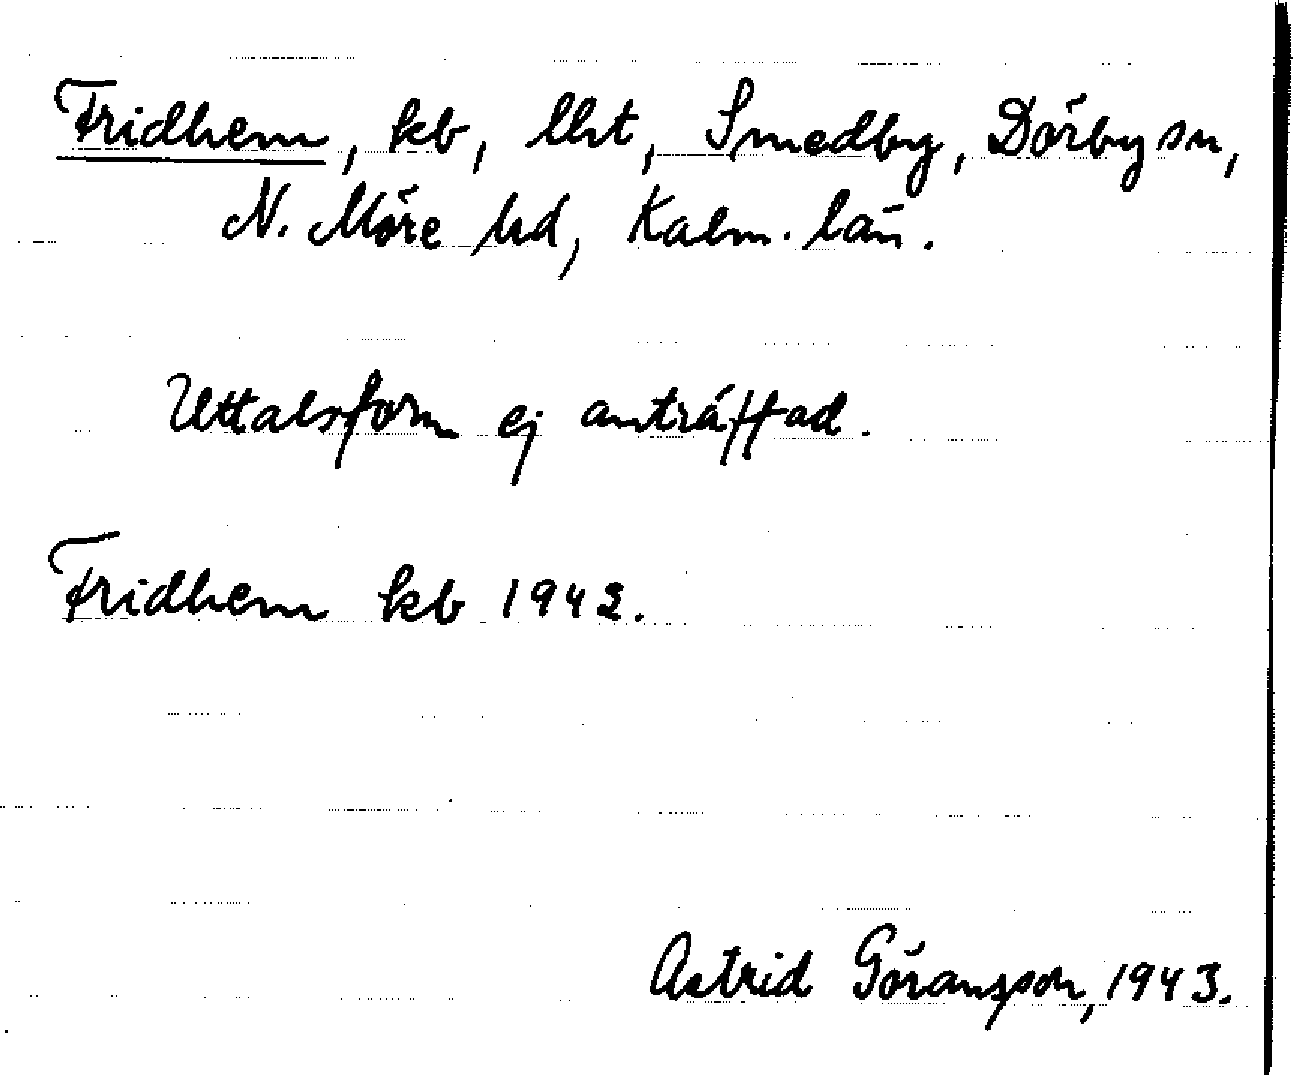 Fridhem, kb, lht, Smedby, Dörby sn,
N. Möre hd, Kalm. län.
Uttalsform ej anträffad.
Fridhem kb 1942.
Astrid Göransson, 1943.